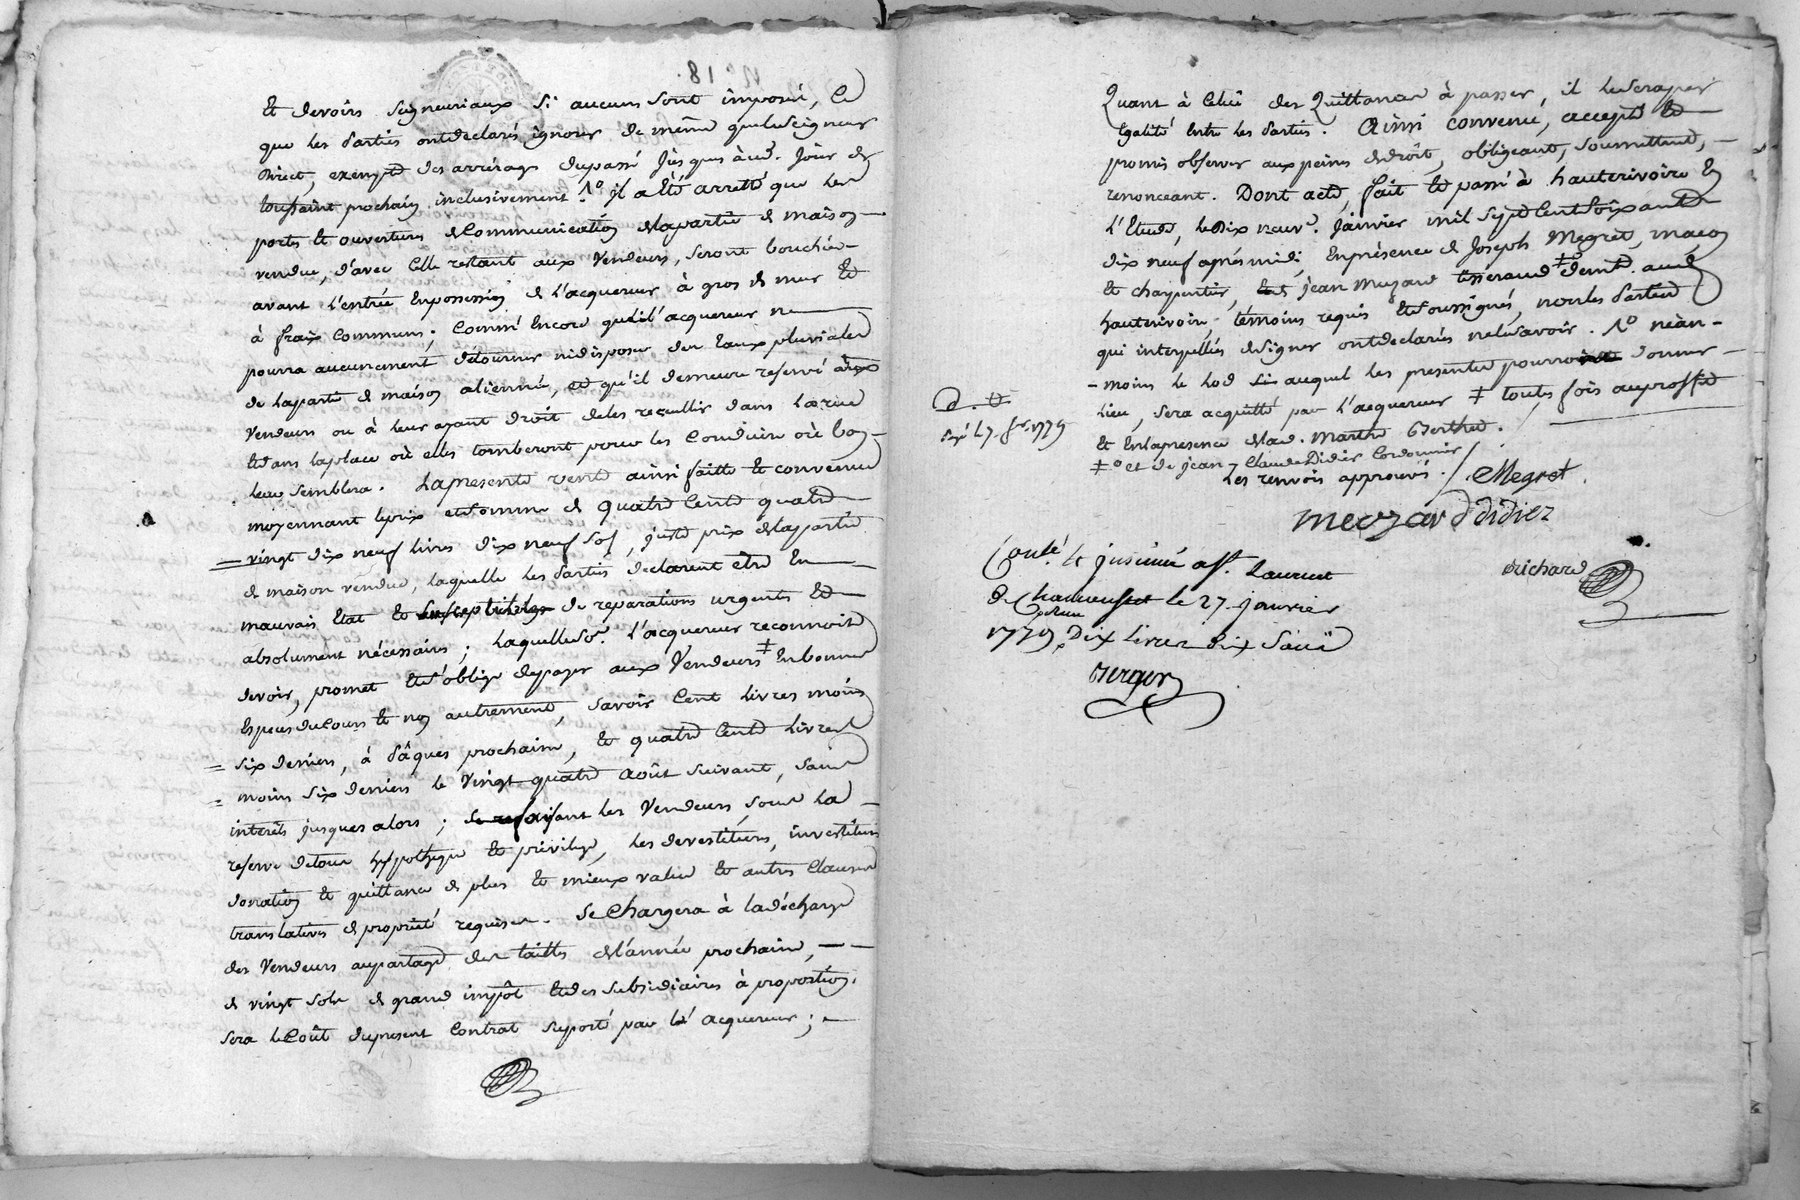 Et devoirs seigneuriaux si aucuns sont imposés, ce
que les parties ont declarés ignorer de même que le seigneur
direct, exempte des arrérages du passé jusques àud. jour de
toussaint prochain inclusivement. Nº il a été arretté que les
portes et ouvertures de communication de la partie de maison
vendue, d'avec celle restant aux vendeurs, seront bouchées
avant l'entrée en possession de l'acquereur à gros de mur et
à fraix communs; comme encore que l'acquereur ne
pourra aucunement détourner ni disposer des eaux pluviales
de la partie de maison alienné, et qu'il demeure reservé aux
vendeurs ou à leur ayant droit de les recueillir dans la rue
et dans la place où elles tomberont pour les conduire où bon
leur semblera. La presente vente ainsi faitte et convenue
moyennant le prix et somme de quatre cents quatre
vingt dix neuf livres dix neuf sols, juste prix de la partie
de maison vendue, laquelle les parties declarent être en
mauvais état et susceptible de reparations urgents et
absolument nécessaires; laquelle so.e l'acquereur reconnoit
devoir, promet et s'oblige de payer aux vendeurs ‡ en bonnes
especes du cours et non autrement, savoir cent livres moins
six deniers, à Pâques prochaine, et quatre cents livres
moins six deniers le vingt quatre août suivant, sans
interêts jusques alors; se faisant les vendeurs, sous la
reserve de tous hypotheque et privilege, les devestitures, investitures
donation et quittance de plus et mieux value et autres clauses
translatives de propriété requises. Se chargera à la décharge
des vendeurs au partage des tailles de l'année prochaine,
de vingt sols de grand impôt et des subsidiaires à proportion.
sera le coût du present contrat suporté par l'acquereur;
Quant à celui des quittances à passer, il le sera par
égalité entre les parties. Ainsi convenu, accepté et
promis observer aux peines de droit, obligeant, soumettant,
renonceant. Dont acte, fait et passé à hauterivoire en
l'étude, le dix neuf. janvier mil sept cent soixante
dix neuf après midi, en présence de Joseph Megret, maçon
et charpentier, jean muzard tisserand ‡º dem.t aud.
hauterivoire, témoins requis et soussignés, non les parties
qui interpellés de signer ont declarés ne le savoir. Nº néan-
-moins le lod auquel les presentes pourroient donner
lieu, sera acquitté par l'acquereur ‡ toutes fois au proffit
et en la presence de lad. Marthe Berthet.
‡º et de jean-Claude Didier cordonnier
les renvois approuvés. Megret.
meyzard didier
Richard
D. E.
exp.é 27. f.er 1779
Conté. & insinué a St. Laurent
de Chamousset le 27 janvier
1779. Dix livres dix sous
Berger